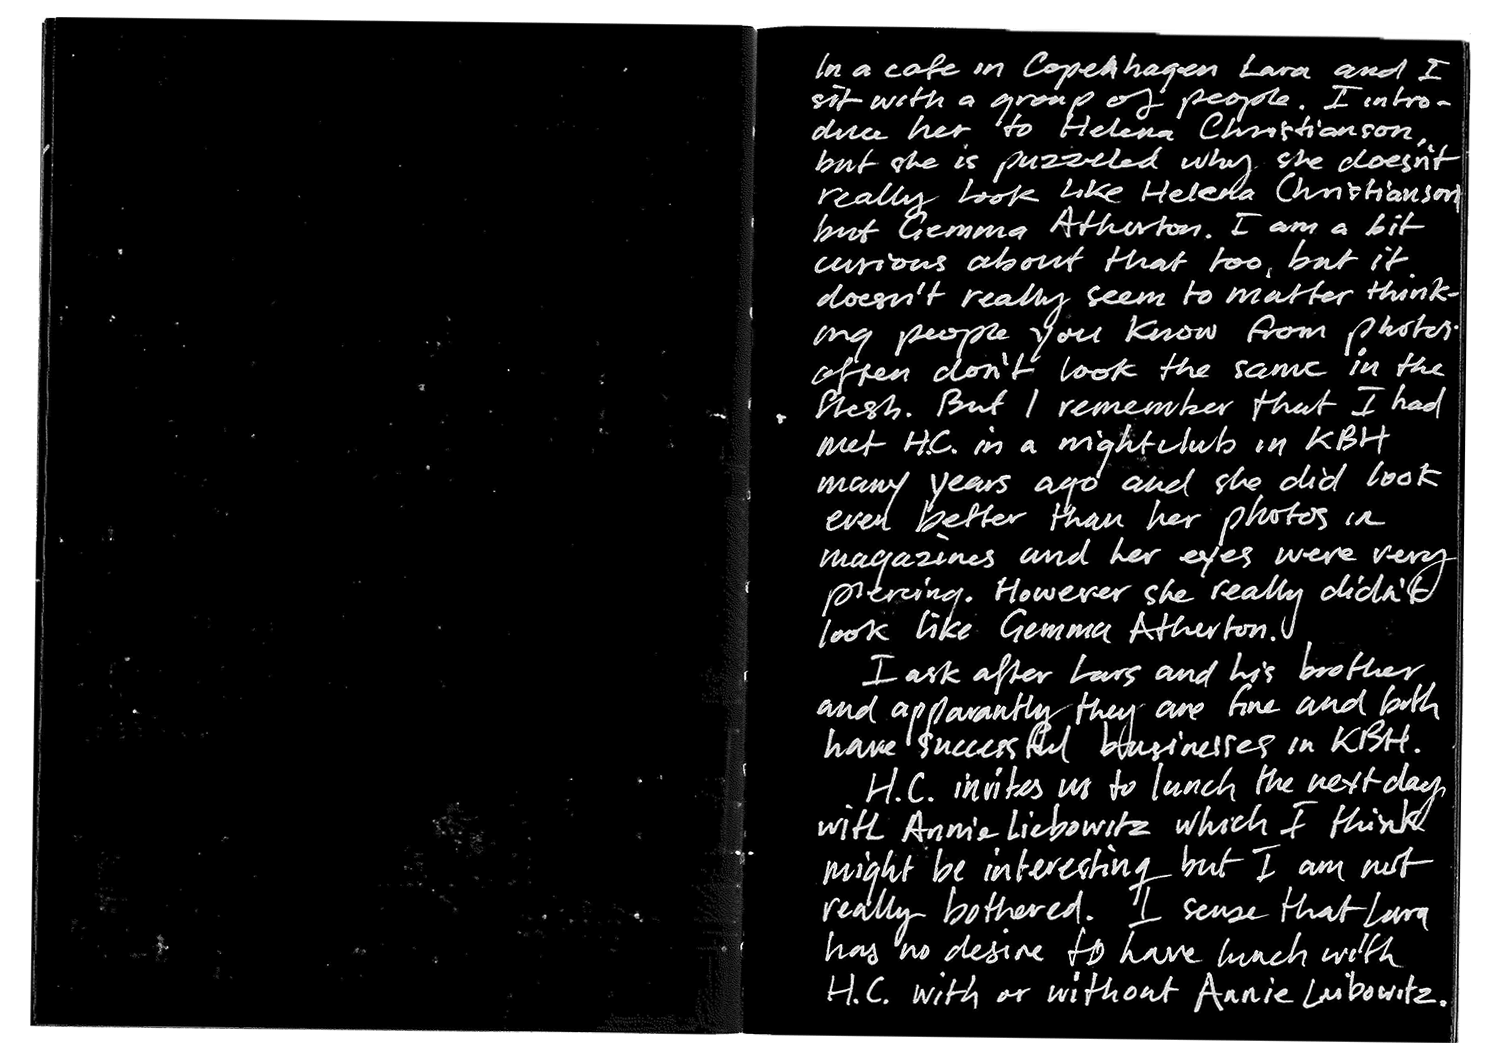 In a cafe in Copenhagen Lara and I
sit with a group of people. I intro-
duce her to Helena Christianson,
but she is puzzeled why she doesn't
really look like Helena Christianson
but Gemma Atherton. I am a bit
curious about that too, but it
doesn't really seem to matter think-
ing people you know from photos
often don't look the same in the
flesh. But I remember that I had
met H.C. in a nightclub in KBH
many years ago and she did look
even better than her photos in
magazines and her eyes were very
piercing. However she really didn't
look like Gemma Atherton.
I ask after Lars and his brother
and apparantly they are fine and both
have successful businesses in KBH.
H.C. invites us to lunch the next day
with Annie Liebowitz which I think
might be interesting but I am not
really bothered. I sense that Lara
has no desire to have lunch with
H.C. with or without Annie Leibowitz.